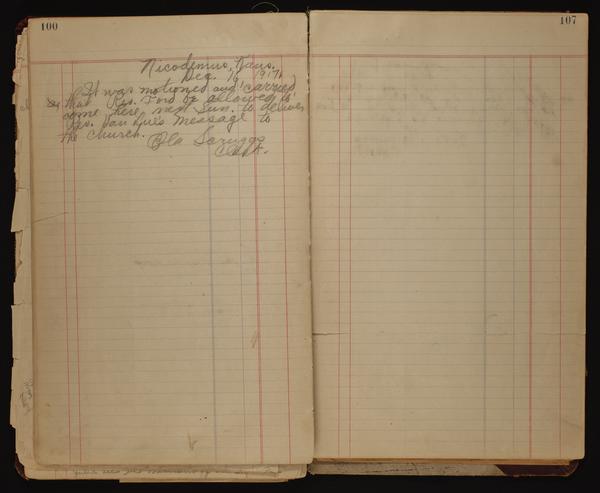 100
Nicodemus, Kans.
Dec. 16 1917.
It was motioned and carried
that Rev. Ford be allowed to
come here next Sun. to deliver
Rev. Van Lue's message to
the church.
Ola Scruggs
Clerk.
107